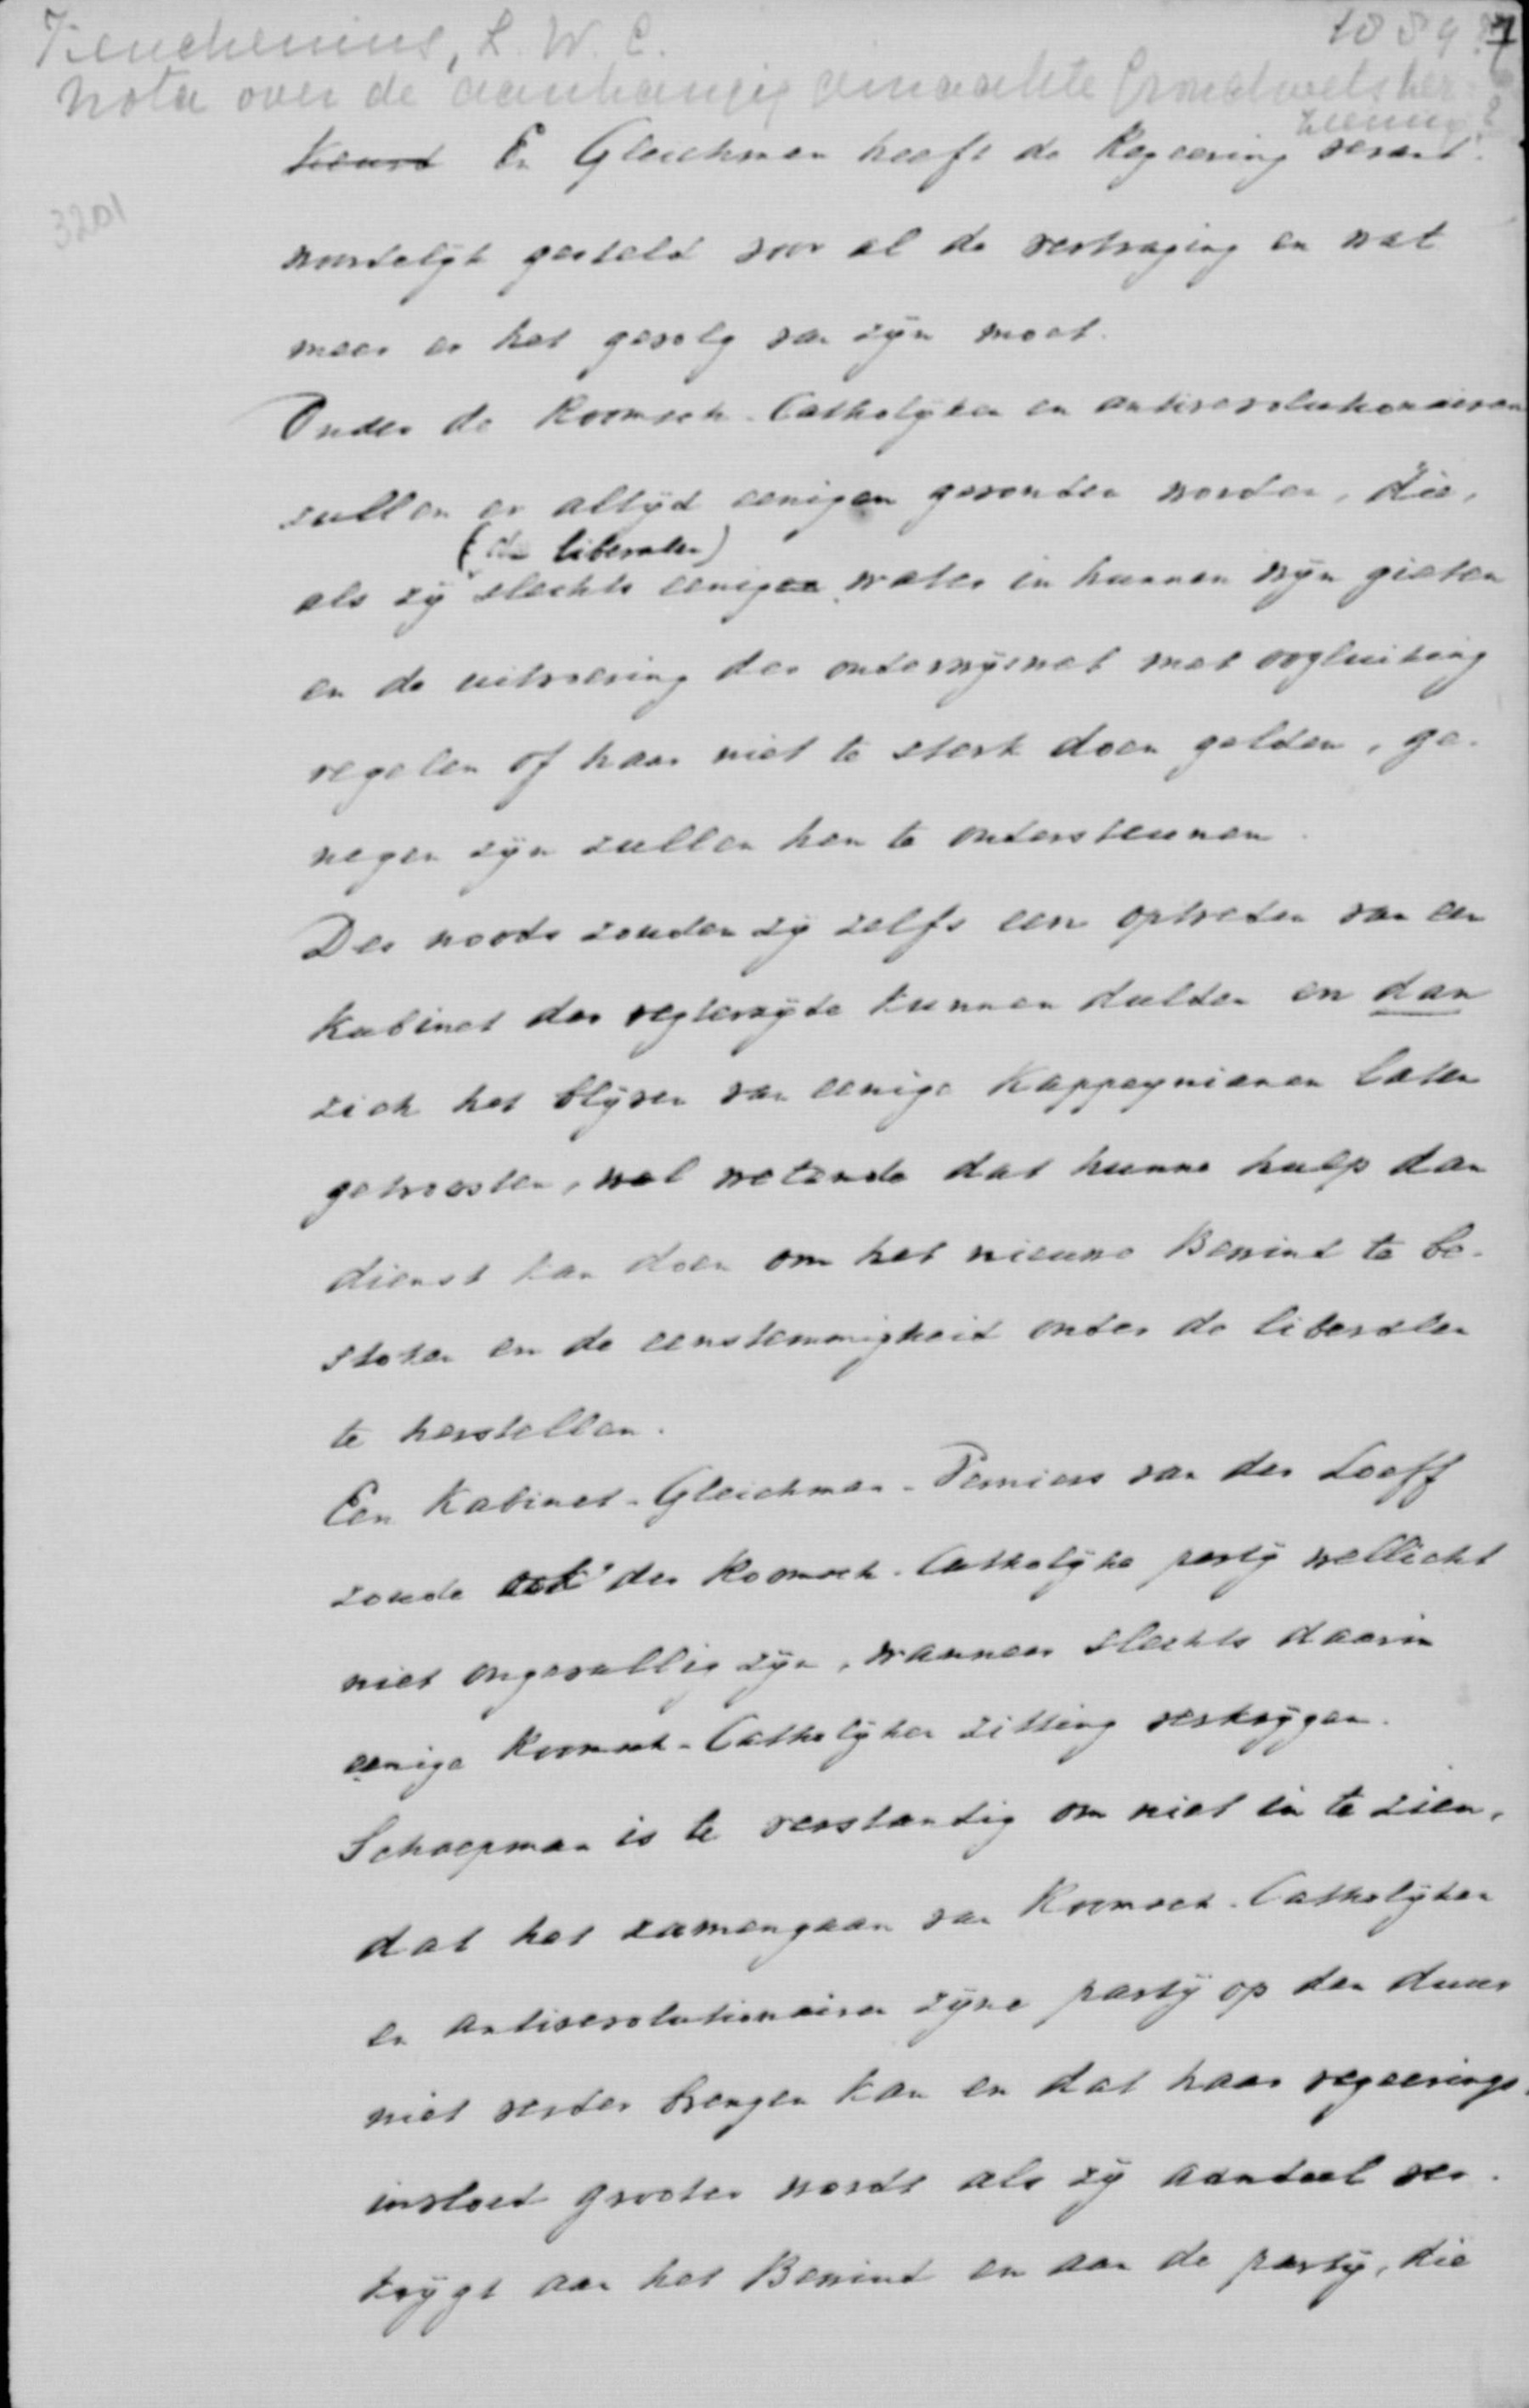 Keuchenius, L. W. C.
1889?
7
Nota over de aanhangig gemaakte Grondwetsher-
ziening?
3201
En Gleichman heeft de Regeering verant-
woordelyk gesteld voor al de vertraging en wat
meer er het gevolg van zyn moet.
Onder de Roomsch-Catholyken en antirevolutionairen
zullen er altyd eenigen gevonden worden, die,
(de liberalen)
als zy slechts eenigen water in hunnen wyn gieten
en de uitvoering der onderwyswet met oogluiking
regelen of haar niet te sterk doen gelden, ge-
negen zyn zullen hen te ondersteunen.
Des noods zouden zy zelfs een optreden van een
Kabinet der regterzyde kunnen dulden en dan
zich het blyven van eenige Kappeynianen laten
getroosten, wel wetende dat hunne hulp dan
dienst kan doen om het nieuwe Bewind te be-
stoken en de eenstemmigheid onder de liberalen
te herstellen.
Een Kabinet-Gleichman-Tersier van der Loeff
zoude ook der Roomsch-Catholyke party wellicht
niet ongevallig zyn, wanneer slechts daarin
eenige Roomsch-Catholyken zitting verkrygen.
Schaepman is te verstandig om niet in te zien,
dat het zamengaan van Roomsch-Catholyken
en antirevolutionairen zyne party op den duur
niet verder brengen kan en dat haar regeerings-
invloed grooter wordt als zy aandeel ver-
krygt aan het Bewind en aan de party, die